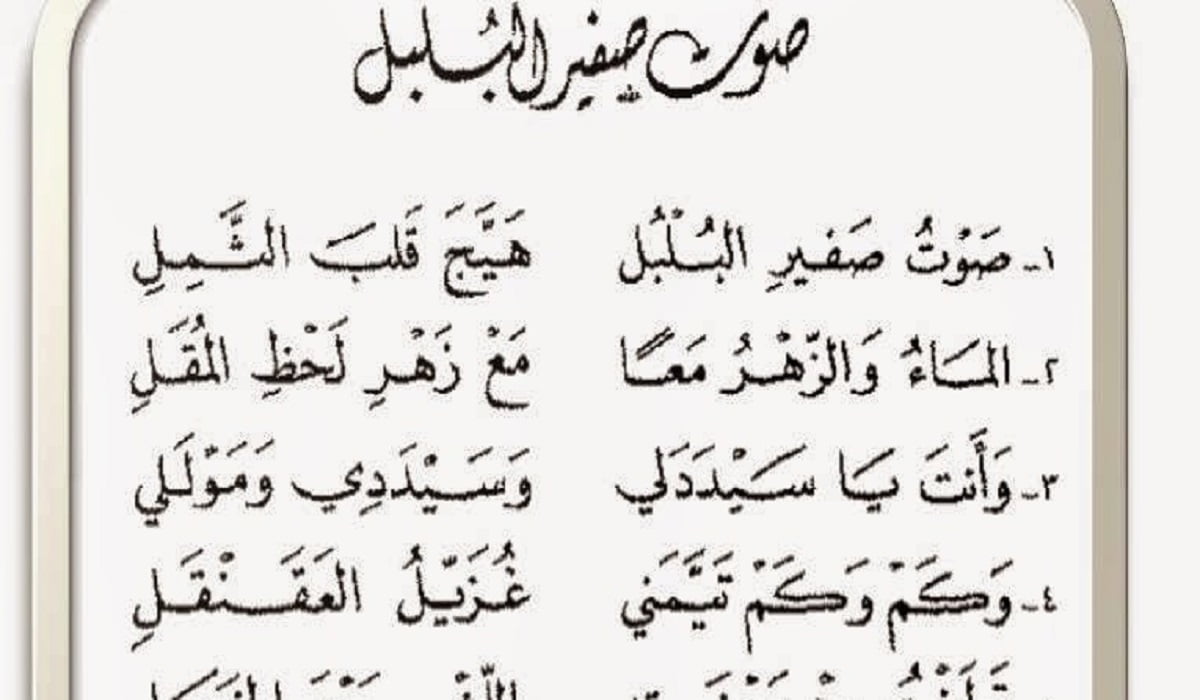 صوت صفير البُلبل
١- صَوْتُ صَفيرِ البُلْبُلِ هَيَّجَ قَلبَ الثَّمِلِ
٢- المَاءُ وَالزَّهْرُ مَعًا مَعْ زَهْرِ لَحْظِ المُقَلِ
٣- وَأَنتَ يَا سَيْدَدَلي وَسَيْدَدِي وَمَوْلَلي
٤- وَكَمْ وَكَمْ تَيَّمَني غُزَيّلُ العَقَنْقَلِ